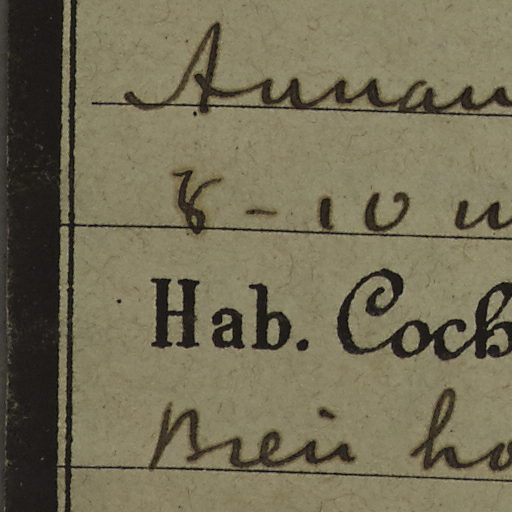 Annam
8-10 m
Hab. Coch
Breii ho